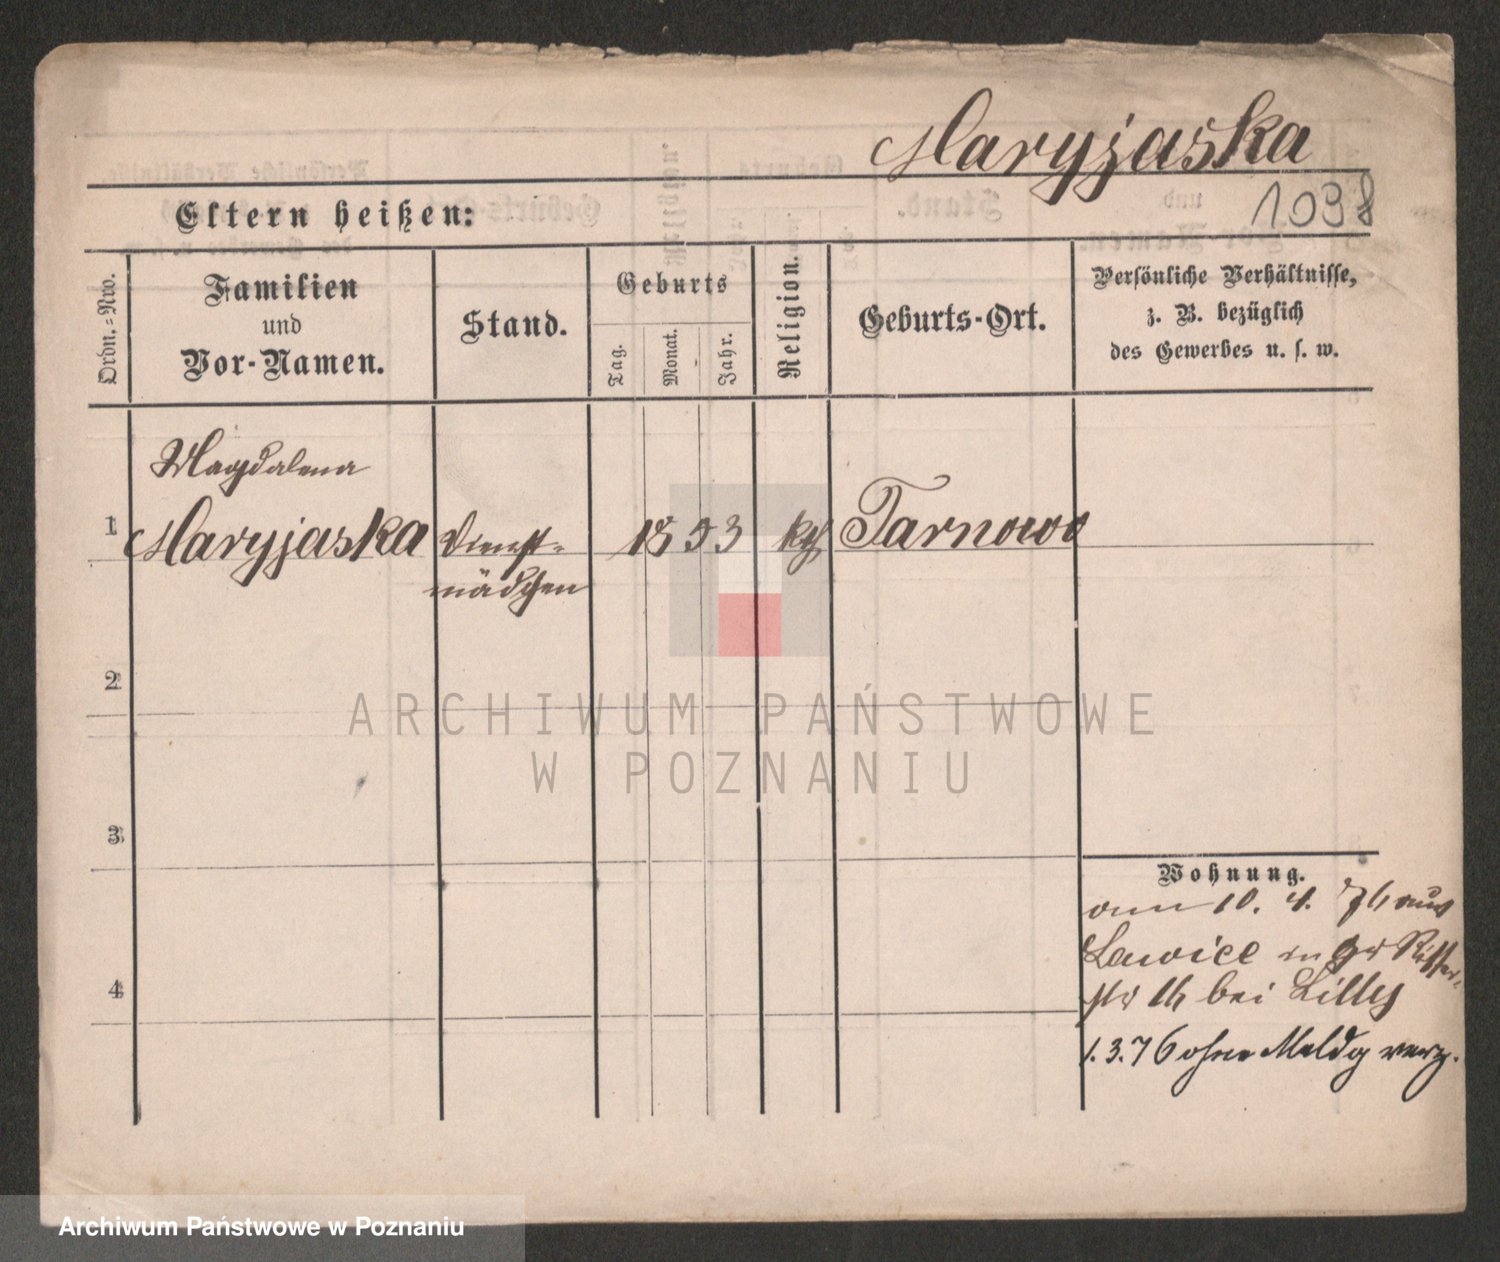 Maryjaska
1038
Eltern heißen:
Ordn.=Nro.
Familien
und
Vor-Namen.
Stand.
Geburts
Tag.
Monat.
Jahr.
Religion.
Geburts-Ort.
Persönliche Verhältnisse,
z. B. bezüglich
des Gewerbes u. s. w.
Magdalena
1 Maryjaska Dienst- 1853 kth Tarnowo
mädchen
2
3
4
Wohnung.
am 10. 4. 76 aus
Lawice in gr Ritter-
str 16 bei Lilly
1.3.76 ohne Meldg verz.
ARCHIWUM PAŃSTWOWE
W POZNANIU
Archiwum Państwowe w Poznaniu